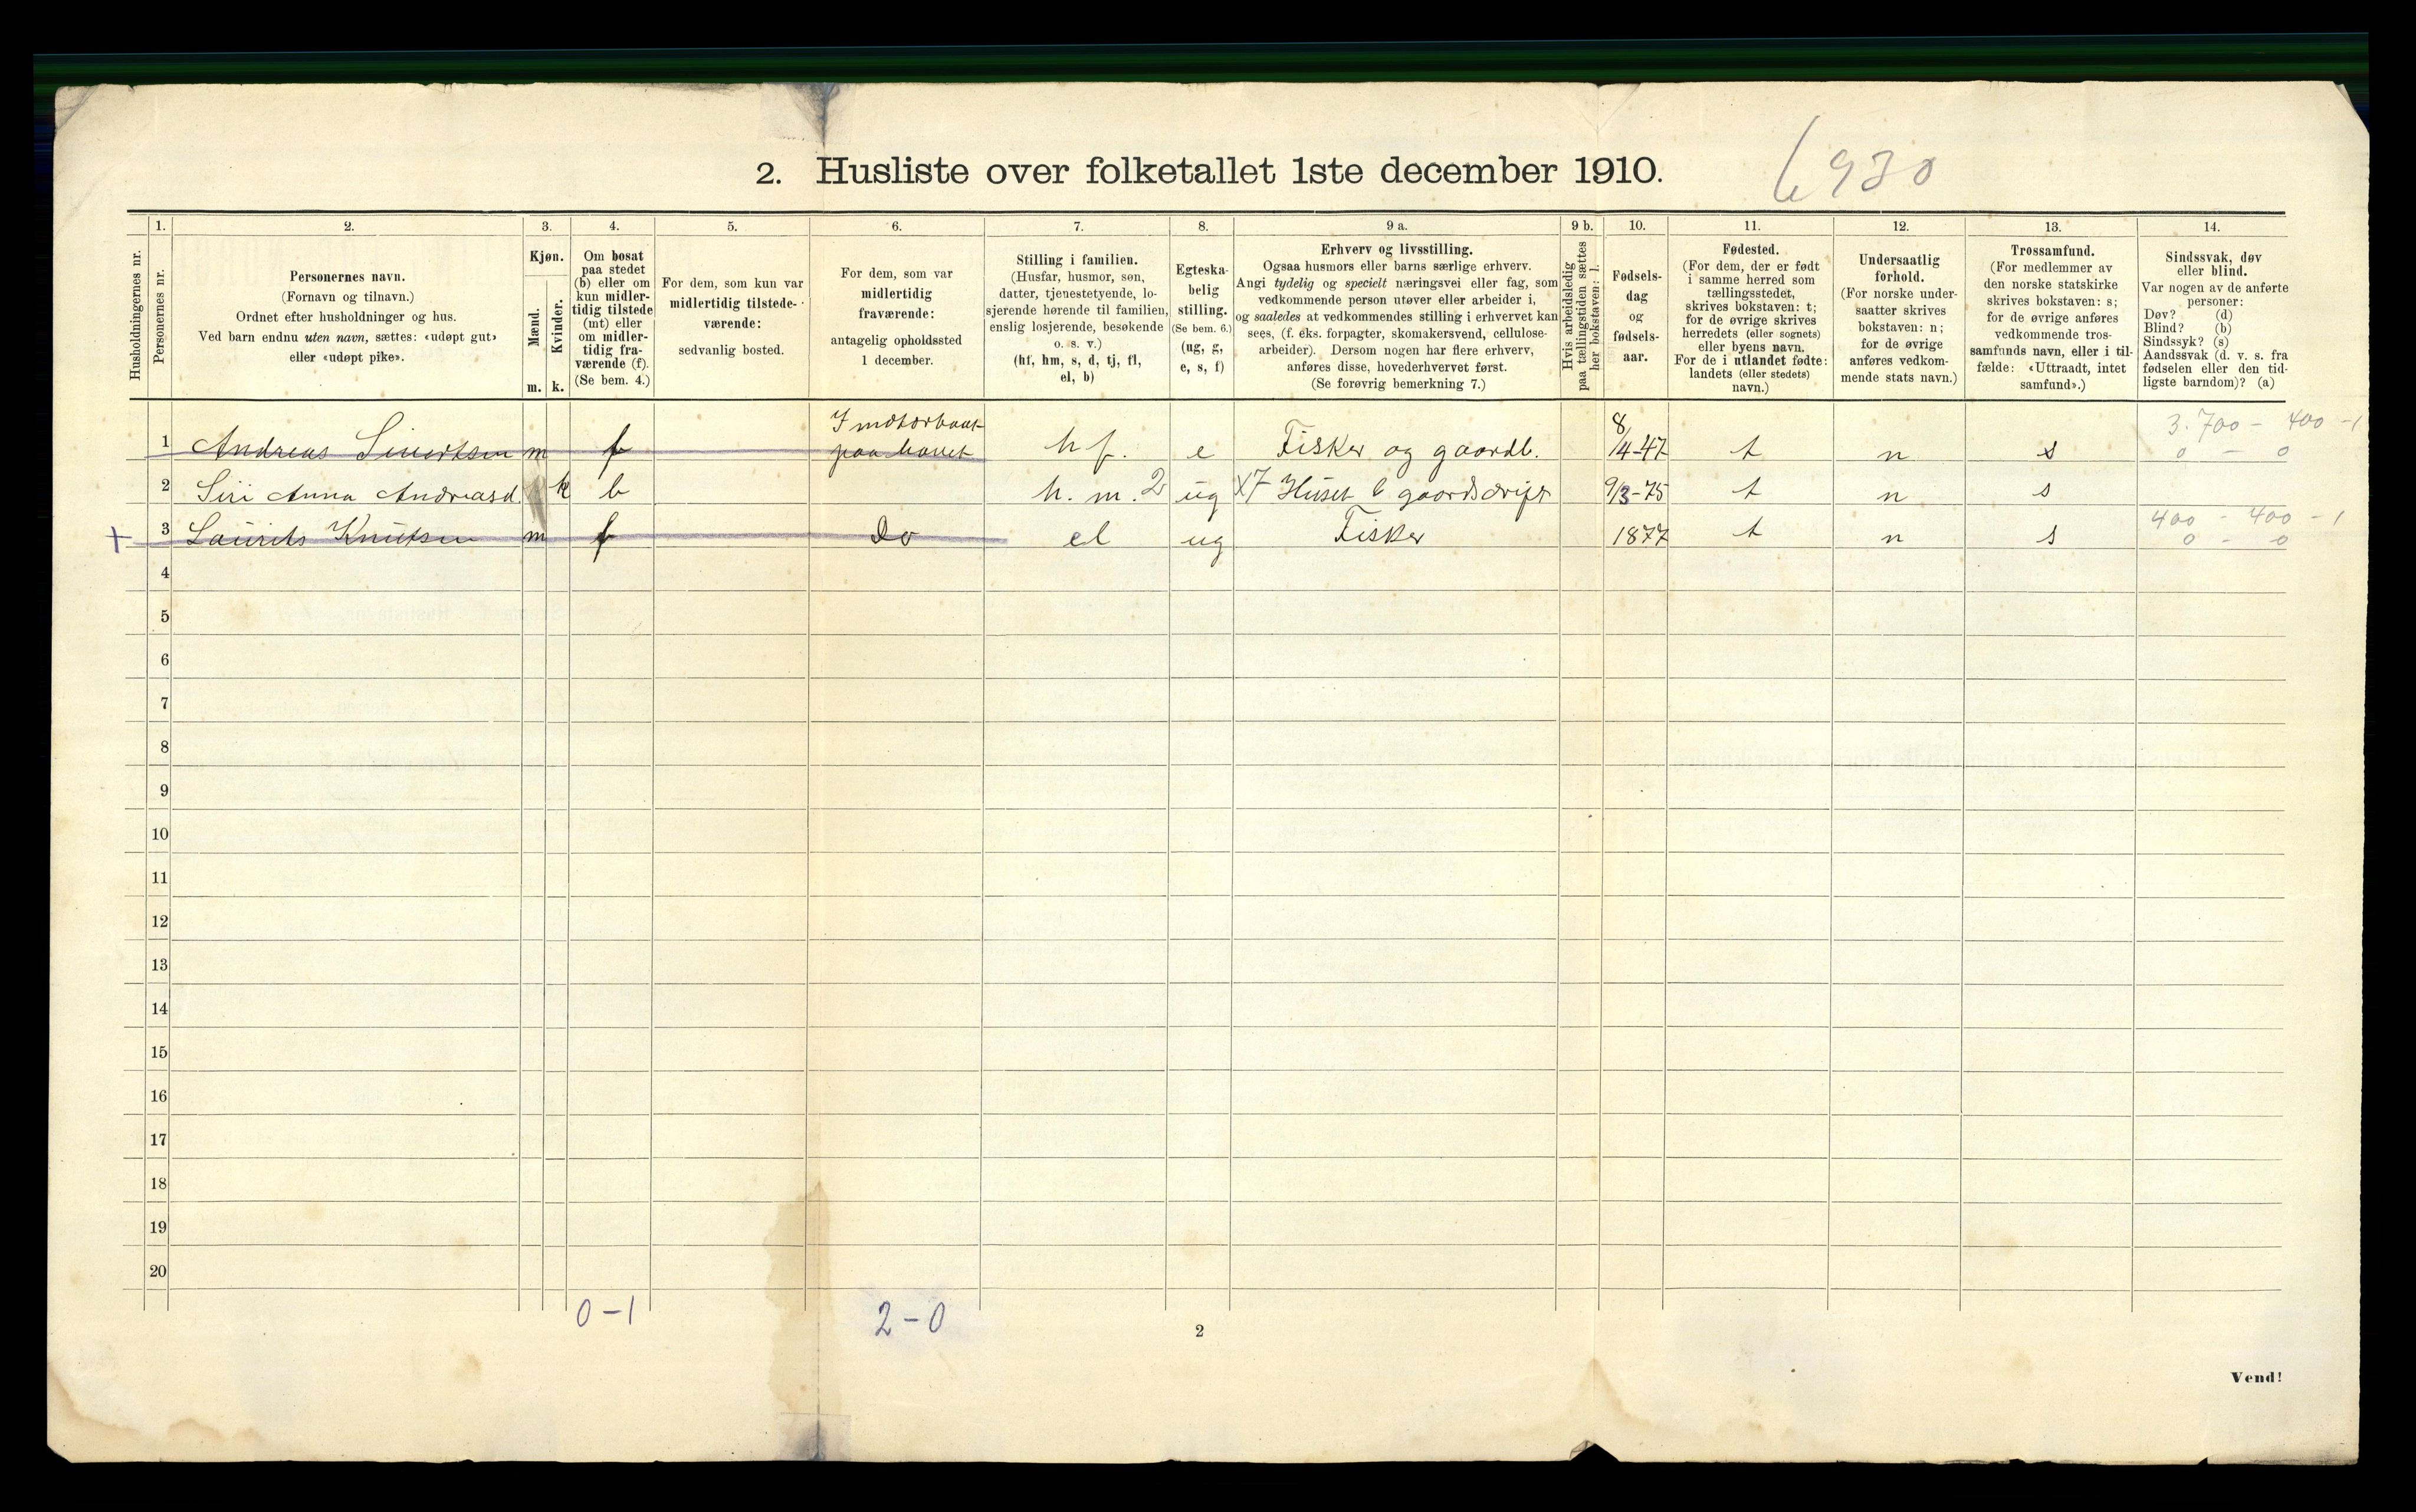 2. Husliste over folketallet 1ste december 1910.
6930
Husholdningernes nr.
1.
Personernes nr.
2.
Personernes navn.
(Fornavn og tilnavn.)
Ordnet efter husholdninger og hus.
Ved barn endnu uten navn, sættes: «udøpt gut»
eller «udøpt pike».
3.
Kjøn.
Mænd.
m.
Kvinder.
k.
4.
Om bosat
paa stedet
(b) eller om
kun midler-
tidig tilstede
(mt) eller
om midler-
tidig fra-
værende (f).
(Se bem. 4.)
5.
For dem, som kun var
midlertidig tilstede-
værende:
sedvanlig bosted.
6.
For dem, som var
midlertidig
fraværende:
antagelig opholdssted
1 december.
7.
Stilling i familien.
(Husfar, husmor, søn,
datter, tjenestetyende, lo-
sjerende hørende til familien,
enslig losjerende, besøkende
o. s. v.)
(hf, hm, s, d, tj, fl,
el, b)
8.
Egteska-
belig
stilling.
(Se bem. 6.)
(ug, g,
e, s, f)
9 a.
Erhverv og livsstilling.
Ogsaa husmors eller barns særlige erhverv.
Angi tydelig og specielt næringsvei eller fag, som
vedkommende person utøver eller arbeider i,
og saaledes at vedkommendes stilling i erhvervet kan
sees, (f. eks. forpagter, skomakersvend, cellulose-
arbeider). Dersom nogen har flere erhverv,
anføres disse, hovederhvervet først.
(Se forøvrig bemerkning 7.)
9 b.
Hvis arbeidsledig
paa tællingstiden sættes
her bokstaven: l.
10.
Fødsels-
dag
og
fødsels-
aar.
11.
Fødested.
(For dem, der er født
i samme herred som
tællingsstedet,
skrives bokstaven: t;
for de øvrige skrives
herredets (eller sognets)
eller byens navn.
For de i utlandet fødte:
landets (eller stedets)
navn.)
12.
Undersaatlig
forhold.
(For norske under-
saatter skrives
bokstaven: n;
for de øvrige
anføres vedkom-
mende stats navn.)
13.
Trossamfund.
(For medlemmer av
den norske statskirke
skrives bokstaven: s;
for de øvrige anføres
vedkommende tros-
samfunds navn, eller i til-
fælde: «Uttraadt, intet
samfund».)
14.
Sindssvak, døv
eller blind.
Var nogen av de anførte
personer:
Døv? (d)
Blind? (b)
Sindssyk? (s)
Aandssvak (d. v. s. fra
fødselen eller den tid-
ligste barndom)? (a)
I motorbaat 8 3.700 - 400 - 1
1 Andreas Sivertsen m f paa havet hf. e Fisker og gaardb. /4-47 t n s 0 - 0
2 Siri Anna Andreasd. k b h. m. 2 ug X7 Huset & gaardsdrift 9/3-75 t n s
400 - 400 - 1
+ 3 Laurits Knutsen m f Do el ug Fisker 1877 t n s 0 - 0
4
5
6
7
8
9
10
11
12
13
14
15
16
17
18
19
20
0-1 2-0
2
Vend!